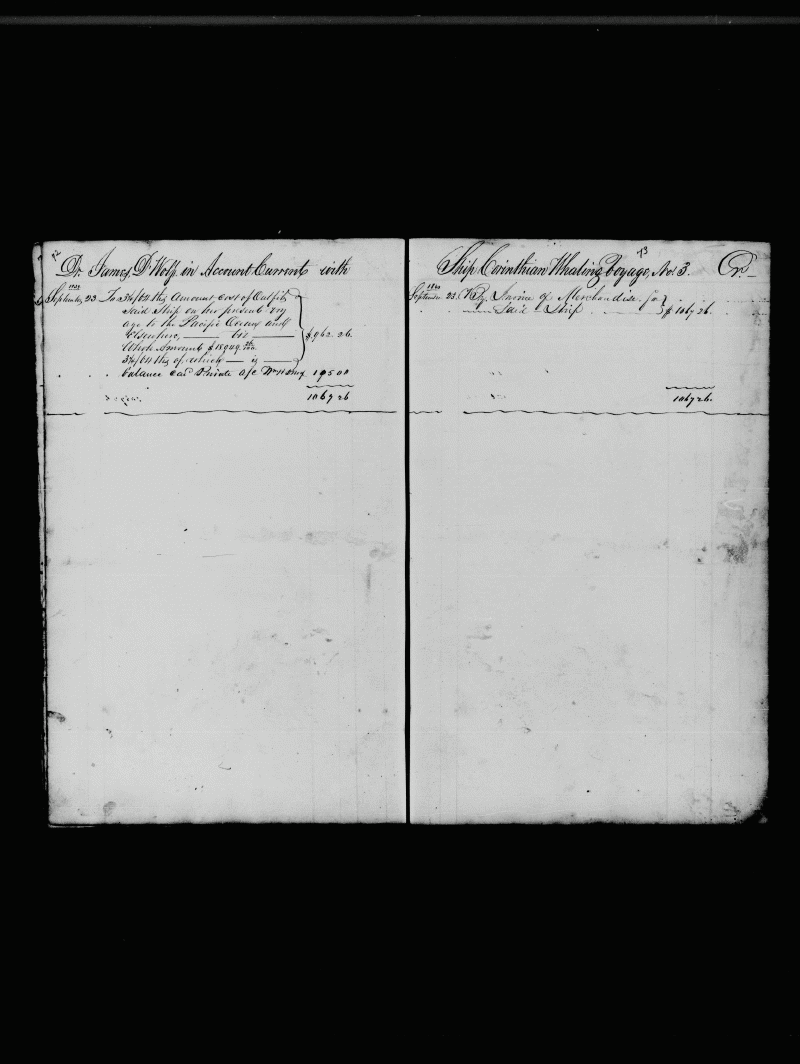 72
Dr. James D'Wolf in Account Current with
September 23 To Amount cost of Outfits
Said Ship on her present voy
age to the Pacific Ocean and
Elsewhere, viz
Whole Amount $18949
of which is
$962.26
balance car'd Private a/c 105 00
1067 26
73
Ship Corinthian Whaling Voyage, No. 3. Cr.
September 23. By Invoice of Merchandise for
Said Ship $1067 26.
1067 26.